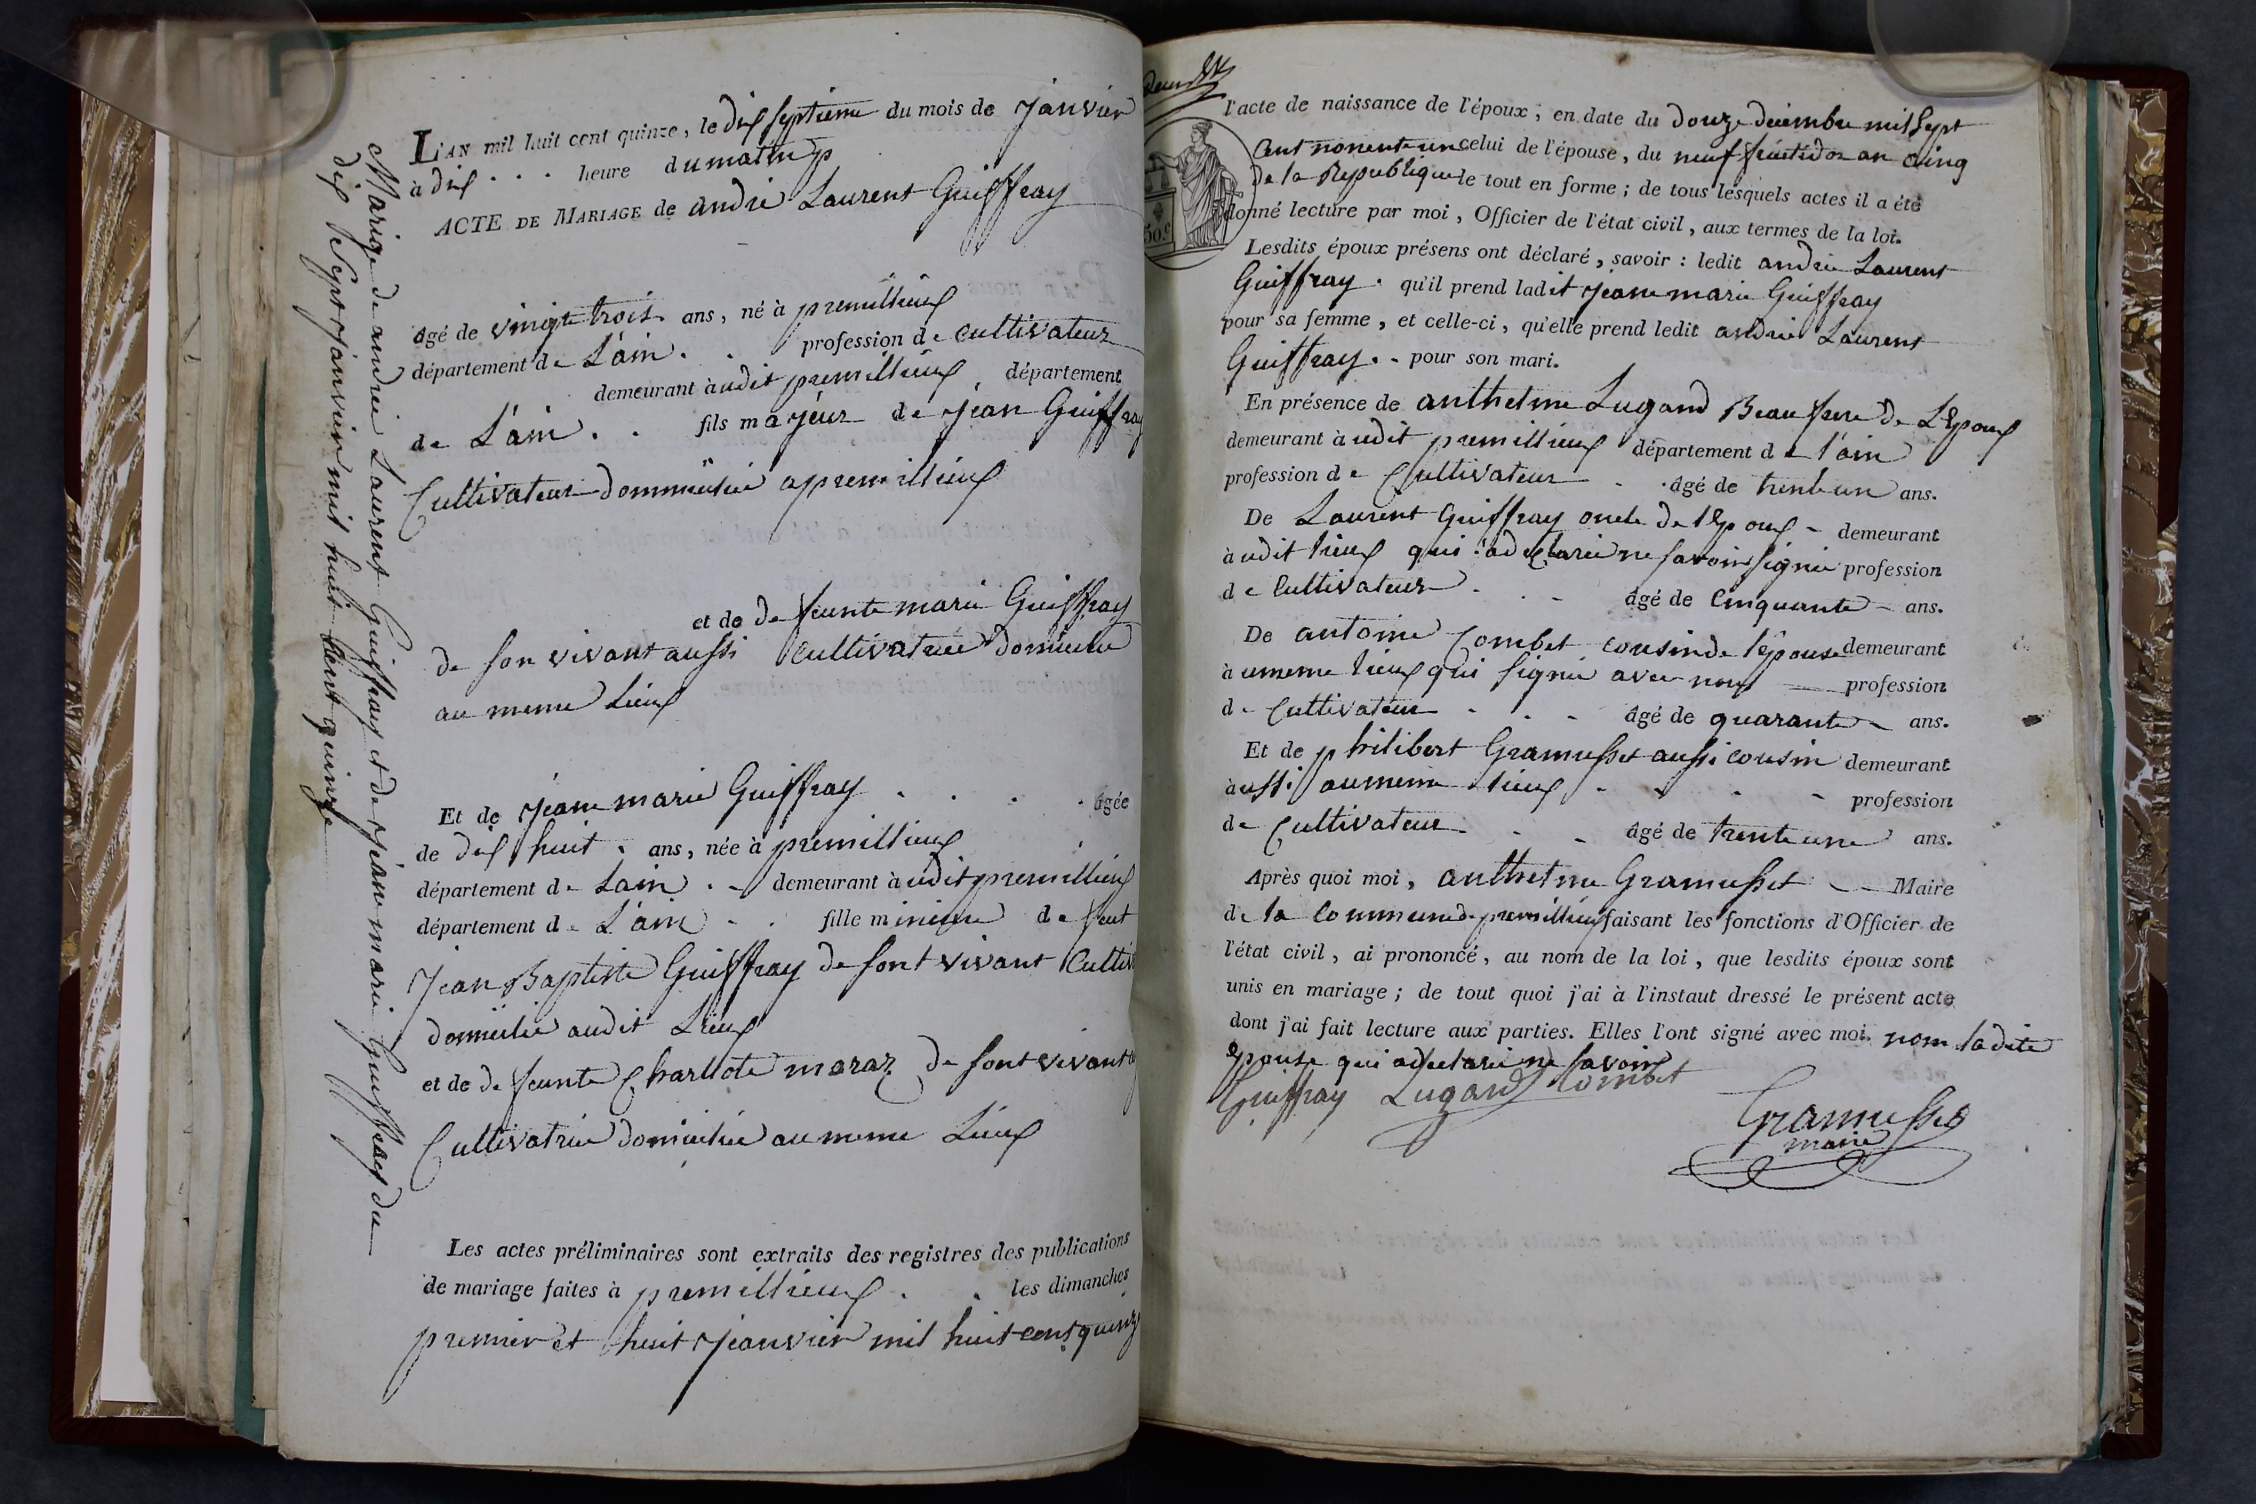 L'AN mil huit cent quinze, le dix septieme du mois de janvier
à dix . . . heure du matin
ACTE DE MARIAGE de andré Laurent Guiffray
âgé de vingt trois ans, né à premillieux
département de L'ain . . profession de cultivateur
demeurant audit premillieux département
de L'ain . . fils majeur de jean Guiffray
Cultivateur domicilié a premillieux
et de de feunte marie Guiffray
de son vivant aussi cultivatrice domicilié
au meme Lieux
Et de jeane marie Guiffray . . . . âgée
de dix huit . ans, née à premillieux
département de Lain . - demeurant à udit premillieux
département de L'ain - . fille mineure de feut
jean Baptiste Guiffray de sont vivant Cultiv
domicilié audit Lieux
et de de feunte Charllote maraz de sont vivant
Cultivatrice domiciliée au meme Lieux
Les actes préliminaires sont extraits des registres des publications
de mariage faites à premillieux . . les dimanches
premier et huit jeanvier mil huit cent quinze
Mariage de andré Laurent Guiffray et de jeane marie Guiffray du
dix sept janvier mil huit cent quinze
50.c
l'acte de naissance de l'époux ; en date du douze decembre mil sept
cent nonente un celui de l'épouse, du neuf fructidor an cinq
de la Republique le tout en forme ; de tous lesquels actes il a été
donné lecture par moi, Officier de l'état civil, aux termes de la loi.
Lesdits époux présens ont déclaré, savoir : ledit andré Laurent
Guiffray . qu'il prend ladit jeane marie Guiffray
pour sa femme, et celle-ci, qu'elle prend ledit andré Laurent
Guiffray . - pour son mari.
En présence de anthelme Lugand Beau frere de L'Epoux
demeurant à udit premillieux département de l'ain
profession de Cultivateur - . âgé de trente un ans.
De Laurent Guiffray oncle de l'Epoux - demeurant
à udit lieux qui a declaré ne savoir signié profession
de Cultivateur . . - âgé de Cinquante - ans.
De antoine Combet cousin de l'épouse demeurant
à umeme lieux qui signié avec nous — profession
de Cultivateur . . - âgé de quarante - ans.
Et de philibert Gramusset aussi cousin demeurant
à ussi aumeme lieux - - - - profession
de Cultivateur . - - âgé de trente une ans.
Après quoi moi, anthelme Gramusset - — Maire
de la Commune de premillieux faisant les fonctions d'Officier de
l'état civil, ai prononcé, au nom de la loi, que lesdits époux sont
unis en mariage ; de tout quoi j'ai à l'instaut dressé le présent acte
dont j'ai fait lecture aux parties. Elles l'ont signé avec moi. nom ladite
Epouse qui a declarié ne savoir
Guiffray Lugand Combet
Gramusset
maire